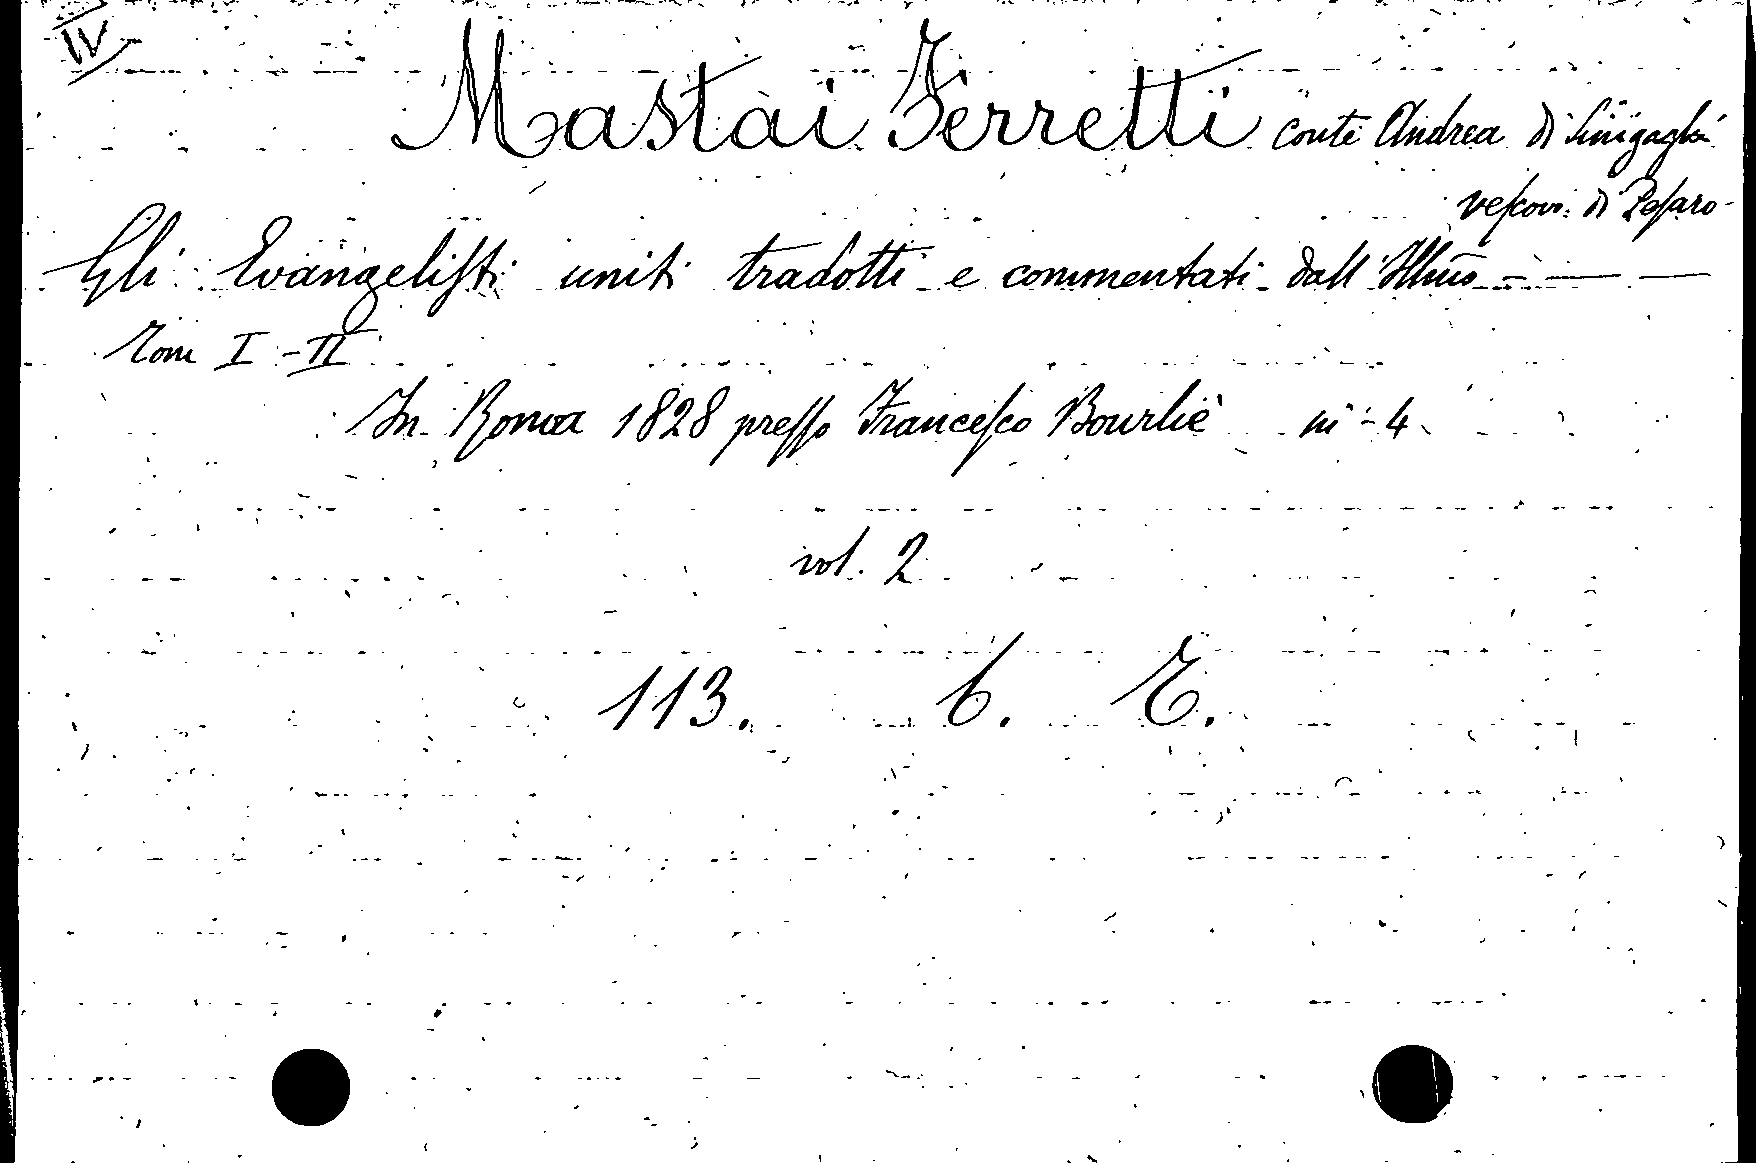 IV
Mastai Ferretti conte Andrea di Sinigaglia
vescovo di Pesaro
Gli Evangelisti uniti tradotti e commentati dall'Illmo — — —
Tom I - II
In Roma 1828 presso Francesco Bourliè in-4
vol. 2
113. 6. E.